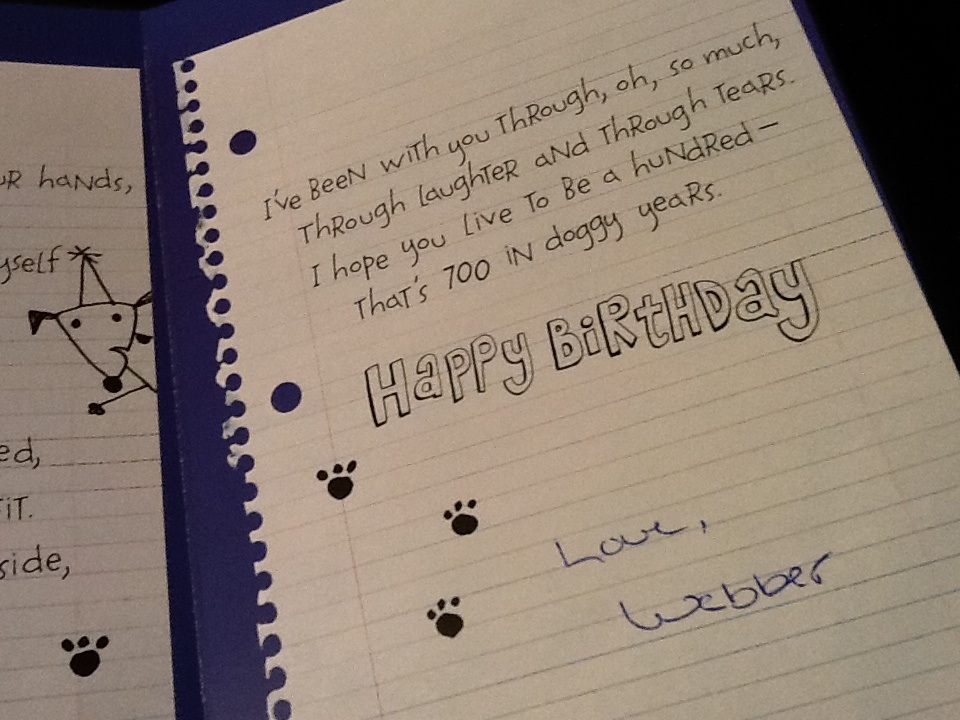 UR haNds,
yself
ed,
iT.
side,
I've BeeN wiTh you ThRough, oh, so much,
ThRough laughTeR aNd ThRough TeaRs.
I hope you Live To Be a huNdRed—
ThaT's 700 iN doggy yeaRs.
HaPPy BiRtHDay
Love,
Webber